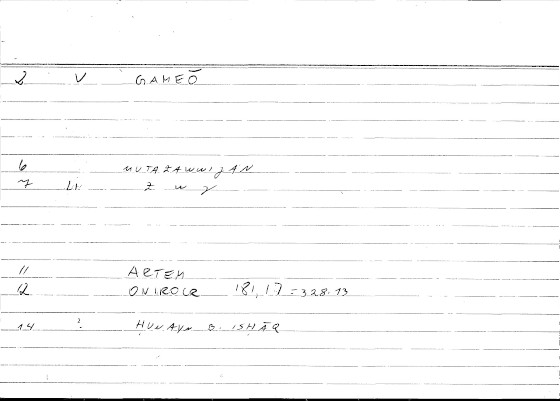 2 V GAMEŌ
6 MUTAZAWWIJAN
7 Li z w j
11 ARTEM
12 ONIROCR 181,17 = 328.13
14 ? ḤUNAYN B. ISḤĀQ